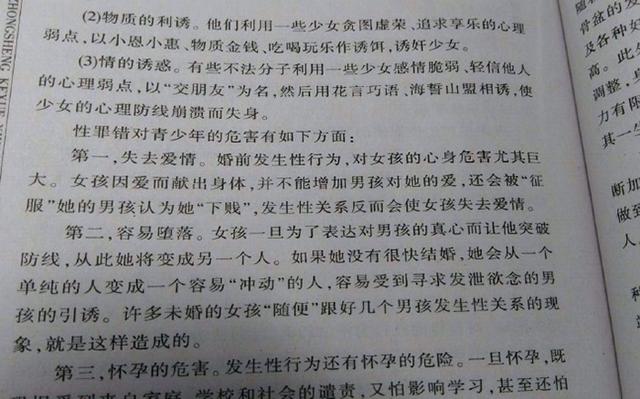 (2)物质的利诱。他们利用一些少女贪图虚荣、追求享乐的心理
弱点，以小恩小惠、物质金钱、吃喝玩乐作诱饵，诱奸少女。
(3)情的诱惑。有些不法分子利用一些少女感情脆弱、轻信他人
的心理弱点，以“交朋友”为名，然后用花言巧语、海誓山盟相诱，使
少女的心理防线崩溃而失身。
性罪错对青少年的危害有如下方面：
第一，失去爱情。婚前发生性行为，对女孩的心身危害尤其巨
大。女孩因爱而献出身体，并不能增加男孩对她的爱，还会被“征
服”她的男孩认为她“下贱”，发生性关系反而会使女孩失去爱情。
第二，容易堕落。女孩一旦为了表达对男孩的真心而让他突破
防线，从此她将变成另一个人。如果她没有很快结婚，她会从一个
单纯的人变成一个容易“冲动”的人，容易受到寻求发泄欲念的男
孩的引诱。许多未婚的女孩“随便”跟好几个男孩发生性关系的现
象，就是这样造成的。
第三，怀孕的危害。发生性行为还有怀孕的危险。一旦怀孕，既
受到来自家庭、学校和社会的谴责，又怕影响学习，甚至还怕
ZHONGSHENG KEYUE
骨盆的发
及各种
高。此
调整，
力有限
其一生
断加
做到
人。